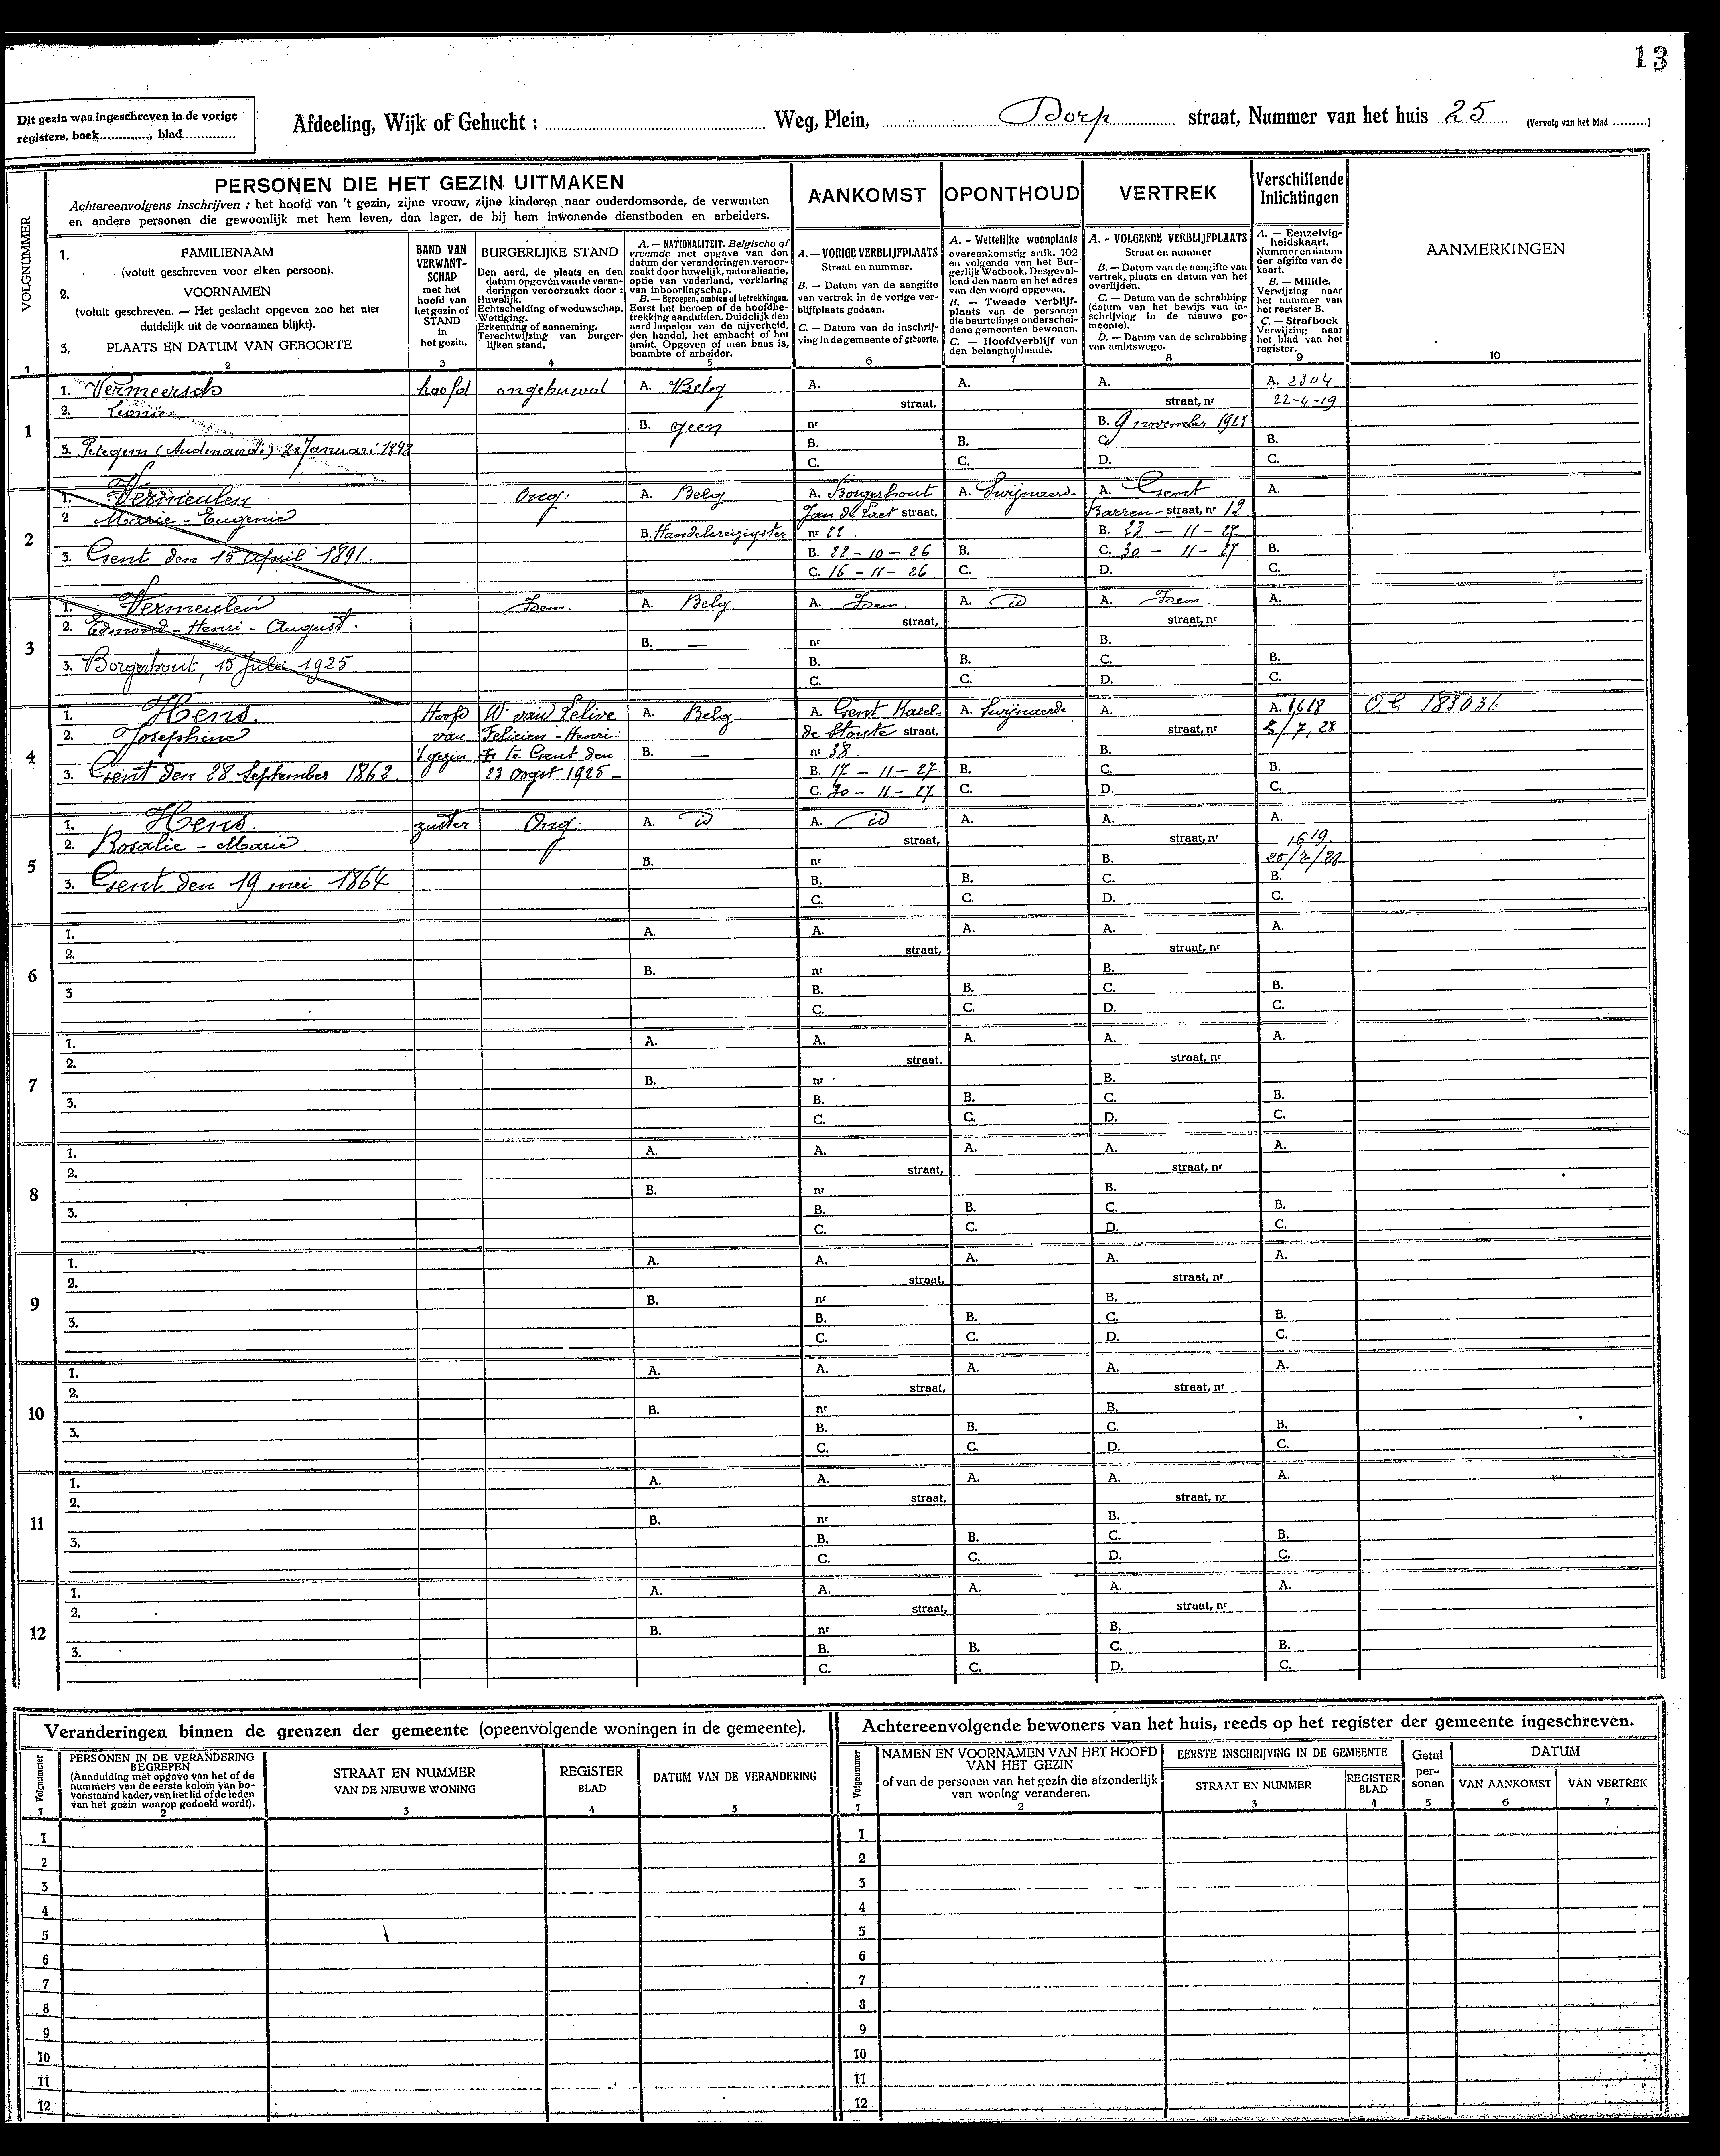 13
Dit gezin was ingeschreven in de vorige
registers, boek............, blad..............
Afdeeling, Wijk of Gehucht : .......... Weg, Plein, .......... Dorp .......... straat, Nummer van het huis 25 (Vervolg van het blad .........)
PERSONEN DIE HET GEZIN UITMAKEN
Achtereenvolgens inschrijven : het hoofd van 't gezin, zijne vrouw, zijne kinderen naar ouderdomsorde, de verwanten
en andere personen die gewoonlijk met hem leven, dan lager, de bij hem inwonende dienstboden en arbeiders.
AANKOMST
OPONTHOUD
VERTREK
Verschillende
Inlichtingen
VOLGNUMMER
1. FAMILIENAAM
(voluit geschreven voor elken persoon).
2. VOORNAMEN
(voluit geschreven. — Het geslacht opgeven zoo het niet
duidelijk uit de voornamen blijkt).
3. PLAATS EN DATUM VAN GEBOORTE
BAND VAN
VERWANT-
SCHAP
met het
hoofd van
het gezin of
STAND
in
het gezin.
BURGERLIJKE STAND
Den aard, de plaats en den
datum opgeven van de veran-
deringen veroorzaakt door :
Huwelijk.
Echtscheiding of weduwschap.
Wettiging.
Erkenning of aanneming.
Terechtwijzing van burger-
lijken stand.
A. — NATIONALITEIT. Belgische of
vreemde met opgave van den
datum der veranderingen veroor-
zaakt door huwelijk, naturalisatie,
optie van vaderland, verklaring
van inboorlingschap.
B. — Beroepen, ambten of betrekkingen.
Eerst het beroep of de hoofdbe-
trekking aanduiden. Duidelijk den
aard bepalen van de nijverheid,
den handel, het ambacht of het
ambt. Opgeven of men baas is,
beambte of arbeider.
A. — VORIGE VERBLIJFPLAATS
Straat en nummer.
B. — Datum van de aangifte
van vertrek in de vorige ver-
blijfplaats gedaan.
C. — Datum van de inschrij-
ving in de gemeente of geboorte.
A. - Wettelijke woonplaats
overeenkomstig artik. 102
en volgende van het Bur-
gerlijk Wetboek. Desgeval-
lend den naam en het adres
van den voogd opgeven.
B. — Tweede verblijf-
plaats van de personen
die beurtelings onderschei-
dene gemeenten bewonen.
C. — Hoofdverblijf van
den belanghebbende.
A. - VOLGENDE VERBLIJFPLAATS
Straat en nummer
B. — Datum van de aangifte van
vertrek, plaats en datum van het
overlijden.
C. — Datum van de schrabbing
(datum van het bewijs van in-
schrijving in de nieuwe ge-
meente).
D. — Datum van de schrabbing
van ambtswege.
A. — Eenzelvig-
heidskaart.
Nummer en datum
der afgifte van de
kaart.
B. — Militie.
Verwijzing naar
het nummer van
het register B.
C. — Strafboek
Verwijzing naar
het blad van het
register.
AANMERKINGEN
1 2 3 4 5 6 7 8 9 10
1. Vermeersch hoofd ongehuwd A. Belg A. A. A. A. 2304
2. Leonie straat, straat, nr 22-4-19
1 B. geen nr B. 9 november 1923
3. Petegem (Audenaarde) 28 Januari 1842 B. B. C. B.
C. C. D. C.
1. Vermeulen Ong: A. Belg A. Borgerhout A. Swijnaerde A. Gent A.
2 Marie - Eugenie Jan de Laet straat, Barren - straat, nr 12
2 B. Handelsreizigster nr 22. B. 23 - 11 - 27
3. Gent den 15 April 1891. B. 22 - 10 - 26 B. C. 30 - 11 - 27 B.
C. 16 - 11 - 26 C. D. C.
1. Vermeulen Idem. A. Belg A. Idem. A. id A. Idem. A.
2. Edmond - Henri - August. straat, straat, nr
3 B. — nr B.
3. Borgerhout, 15 Juli 1925 B. B. C. B.
C. C. D. C.
1. Hens. Hoofd W. van Lelive A. Belg A. Gent Karel- A. Swijnaerde A. A. 1618 183031
2. Josephine van Felicien - Henri: de Stoute straat, straat, nr 5/7, 28
4 't gezin te Gent den B. — nr 38. B.
3. Gent den 28 September 1862. 23 oogst 1925 - B. 17 - 11 - 27. B. C. B.
C. 30 - 11 - 27. C. D. C.
1. Hens. zuster Ong: A. id A. id A. A. A.
2. Rosalie - Marie straat, straat, nr 1619
5 B. nr B. 25/7/28
3. Gent den 19 mei 1864 B. B. C. B.
C. C. D. C.
1. A. A. A. A. A.
2. straat, straat, nr
6 B. nr B.
3 B. B. C. B.
C. C. D. C.
1. A. A. A. A. A.
2. straat, straat, nr
7 B. nr B.
3. B. B. C. B.
C. C. D. C.
1. A. A. A. A. A.
2. straat, straat, nr
8 B. nr B.
3. B. B. C. B.
C. C. D. C.
1. A. A. A. A. A.
2. straat, straat, nr
9 B. nr B.
3. B. B. C. B.
C. C. D. C.
1. A. A. A. A. A.
2. straat, straat, nr
10 B. nr B.
3. B. B. C. B.
C. C. D. C.
1. A. A. A. A. A.
2. straat, straat, nr
11 B. nr B.
3. B. B. C. B.
C. C. D. C.
1. A. A. A. A. A.
2. straat, straat, nr
12 B. nr B.
3. B. B. C. B.
C. C. D. C.
Veranderingen binnen de grenzen der gemeente (opeenvolgende woningen in de gemeente).
Volgnummer
PERSONEN IN DE VERANDERING
BEGREPEN
(Aanduiding met opgave van het of de
nummers van de eerste kolom van bo-
venstaand kader, van het lid of de leden
van het gezin waarop gedoeld wordt).
STRAAT EN NUMMER
VAN DE NIEUWE WONING
REGISTER
BLAD
DATUM VAN DE VERANDERING
1 2 3 4 5
1
2
3
4
5
6
7
8
9
10
11
12
Achtereenvolgende bewoners van het huis, reeds op het register der gemeente ingeschreven.
Volgnummer
NAMEN EN VOORNAMEN VAN HET HOOFD
VAN HET GEZIN
of van de personen van het gezin die afzonderlijk
van woning veranderen.
EERSTE INSCHRIJVING IN DE GEMEENTE
STRAAT EN NUMMER
REGISTER
BLAD
Getal
per-
sonen
DATUM
VAN AANKOMST
VAN VERTREK
1 2 3 4 5 6 7
1
2
3
4
5
6
7
8
9
10
11
12